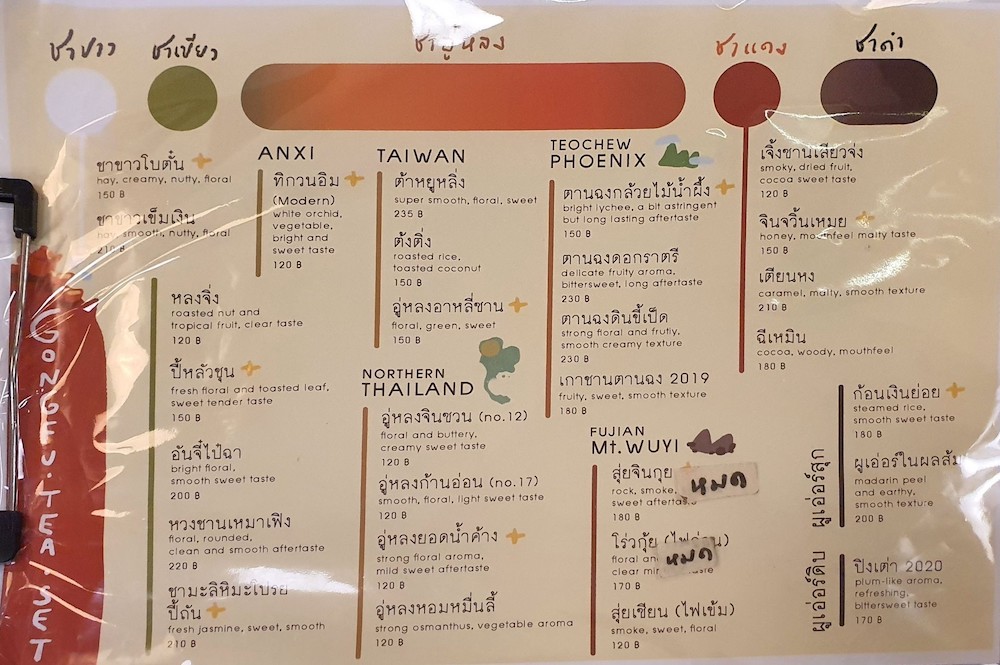 ชาขาว
ชาเขียว
ชาอู่หลง
ชาแดง
ชาดำ
ชาขาวโบตั๋น
hay, creamy, nutty, floral
150 B
ชาขาวเข็มเงิน
hay, smooth, nutty, floral
210 B
หลงจิ่ง
roasted nut and
tropical fruit, clear taste
120 B
ปี้หลัวชุน
fresh floral and toasted leaf,
sweet tender taste
150 B
อันจี๋ไป๋ฉา
bright floral,
smooth sweet taste
200 B
หวงซานเหมาเฟิง
floral, rounded,
clean and smooth aftertaste
220 B
ชามะลิหิมะโปรย
ปี้ถัน
fresh jasmine, sweet, smooth
210 B
ANXI
ทิกวนอิม
(Modern)
white orchid,
vegetable,
bright and
sweet taste
120 B
TAIWAN
ต้าหยูหลิ่ง
super smooth, floral, sweet
235 B
ต้งติ่ง
roasted rice,
toasted coconut
150 B
อู่หลงอาหลี่ซาน
floral, green, sweet
150 B
NORTHERN
THAILAND
อู่หลงจินซวน (no.12)
floral and buttery,
creamy sweet taste
120 B
อู่หลงก้านอ่อน (no.17)
smooth, floral, light sweet taste
120 B
อู่หลงยอดน้ำค้าง
strong floral aroma,
mild sweet aftertaste
120 B
อู่หลงหอมหมื่นลี้
strong osmanthus, vegetable aroma
120 B
TEOCHEW
PHOENIX
ตานฉงกล้วยไม้น้ำผึ้ง
bright lychee, a bit astringent
but long lasting aftertaste
150 B
ตานฉงดอกราตรี
delicate fruity aroma,
bittersweet, long aftertaste
230 B
ตานฉงดินขี้เป็ด
strong floral and frutiy,
smooth creamy texture
230 B
เกาซานตานฉง 2019
fruity, sweet, smooth texture
180 B
FUJIAN
Mt. WUYI
สุ่ยจินกุย
rock, smoke,
sweet
หมด
180 B
โร่วกุ้ย
floral
clear
หมด
170 B
สุ่ยเซียน (ไฟเข้ม)
smoke, sweet, floral
120 B
เจิ้งซานเสียวจ่ง
smoky, dried fruit,
cocoa sweet taste
120 B
จินจวิ้นเหมย
honey, mouthfeel malty taste
150 B
เตียนหง
caramel, malty, smooth texture
210 B
ฉีเหมิน
cocoa, woody, mouthfeel
180 B
ผูเอ่อร์สุก
ก้อนเงินย่อย
steamed rice,
smooth sweet taste
180 B
ผูเอ่อร์ในผลส้ม
madarin peel
and earthy,
smooth texture
200 B
ผูเอ่อร์ดิบ
ปิงเต่า 2020
plum-like aroma,
refreshing,
bittersweet taste
170 B